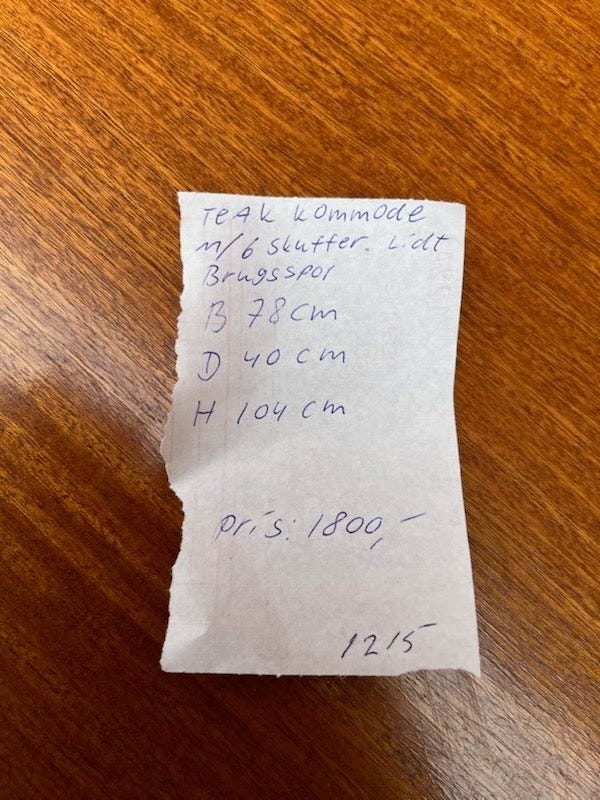 Teak kommode
m/6 skuffer. Lidt
Brugsspor
B 78 cm
D 40 cm
H 104 cm
pris: 1800,-
1215